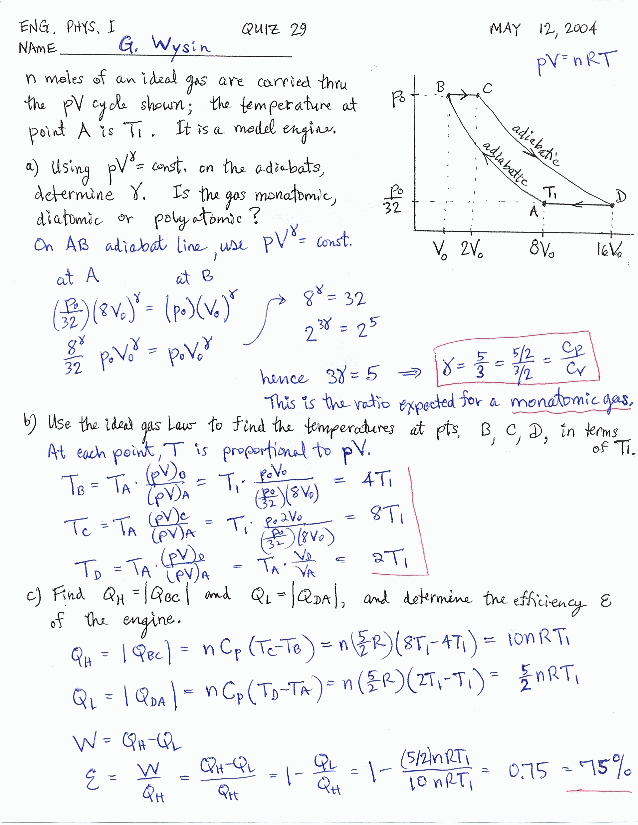 ENG. PHYS. I QUIZ 29 MAY 12, 2004
NAME G. Wysin
pV=nRT
n moles of an ideal gas are carried thru
the pV cycle shown; the temperature at
point A is T₁. It is a model engine.
a) Using pV^γ = const. on the adiabats,
determine γ. Is the gas monatomic,
diatomic or polyatomic?
P₀ B C
adiabatic
adiabatic
p₀/32 A T₁ D
V₀ 2V₀ 8V₀ 16V₀
On AB adiabat line, use pV^γ = const.
at A at B
(p₀/32)(8V₀)^γ = (p₀)(V₀)^γ
8^γ/32 p₀V₀^γ = p₀V₀^γ
8^γ = 32
2^3γ = 2^5
hence 3γ = 5 ⇒ γ = 5/3 = (5/2)/(3/2) = Cp/Cv
This is the ratio expected for a monatomic gas.
b) Use the ideal gas Law to find the temperatures at pts. B, C, D, in terms of T₁.
At each point, T is proportional to pV.
T_B = T_A · (pV)_B/(pV)_A = T₁ · p₀V₀/((p₀/32)(8V₀)) = 4T₁
T_C = T_A (pV)_C/(pV)_A = T₁ · p₀2V₀/((p₀/32)(8V₀)) = 8T₁
T_D = T_A · (pV)_D/(pV)_A = T_A · V_D/V_A = 2T₁
c) Find Q_H = |Q_BC| and Q_L = |Q_DA|, and determine the efficiency ε
of the engine.
Q_H = |Q_BC| = n Cp (T_C-T_B) = n(5/2 R)(8T₁-4T₁) = 10nRT₁
Q_L = |Q_DA| = n Cp (T_D-T_A) = n(5/2 R)(2T₁-T₁) = 5/2 nRT₁
W = Q_H-Q_L
ε = W/Q_H = (Q_H-Q_L)/Q_H = 1 - Q_L/Q_H = 1 - (5/2)nRT₁/10nRT₁ = 0.75 = 75%